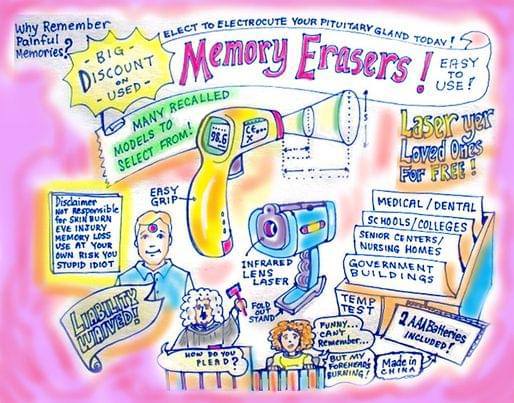 Why Remember
Painful
Memories?
ELECT TO ELECTROCUTE YOUR PITUITARY GLAND TODAY!
- BIG -
DISCOUNT
ON
- USED -
Memory Erasers!
EASY
TO
USE!
MANY RECALLED
MODELS TO
SELECT FROM!
98.6
Laser yer
Loved Ones
For FREE!
Disclaimer
NOT Responsible
for SKIN BURN
EYE INJURY
MEMORY LOSS
USE AT YOUR
OWN RISK YOU
STUPID IDIOT
EASY
GRIP
MEDICAL / DENTAL
SCHOOLS / COLLEGES
SENIOR CENTERS/
NURSING HOMES
GOVERNMENT
BUILDINGS
INFRARED
LENS
LASER
FOLD
OUT
STAND
TEMP
TEST
LIABILITY
WAIVED!
2 AAA Batteries
INCLUDED!
HOW DO YOU
PLEAD?
FUNNY...
CAN'T
Remember...
BUT MY
FOREHEAD'S
BURNING!
Made in
CHINA